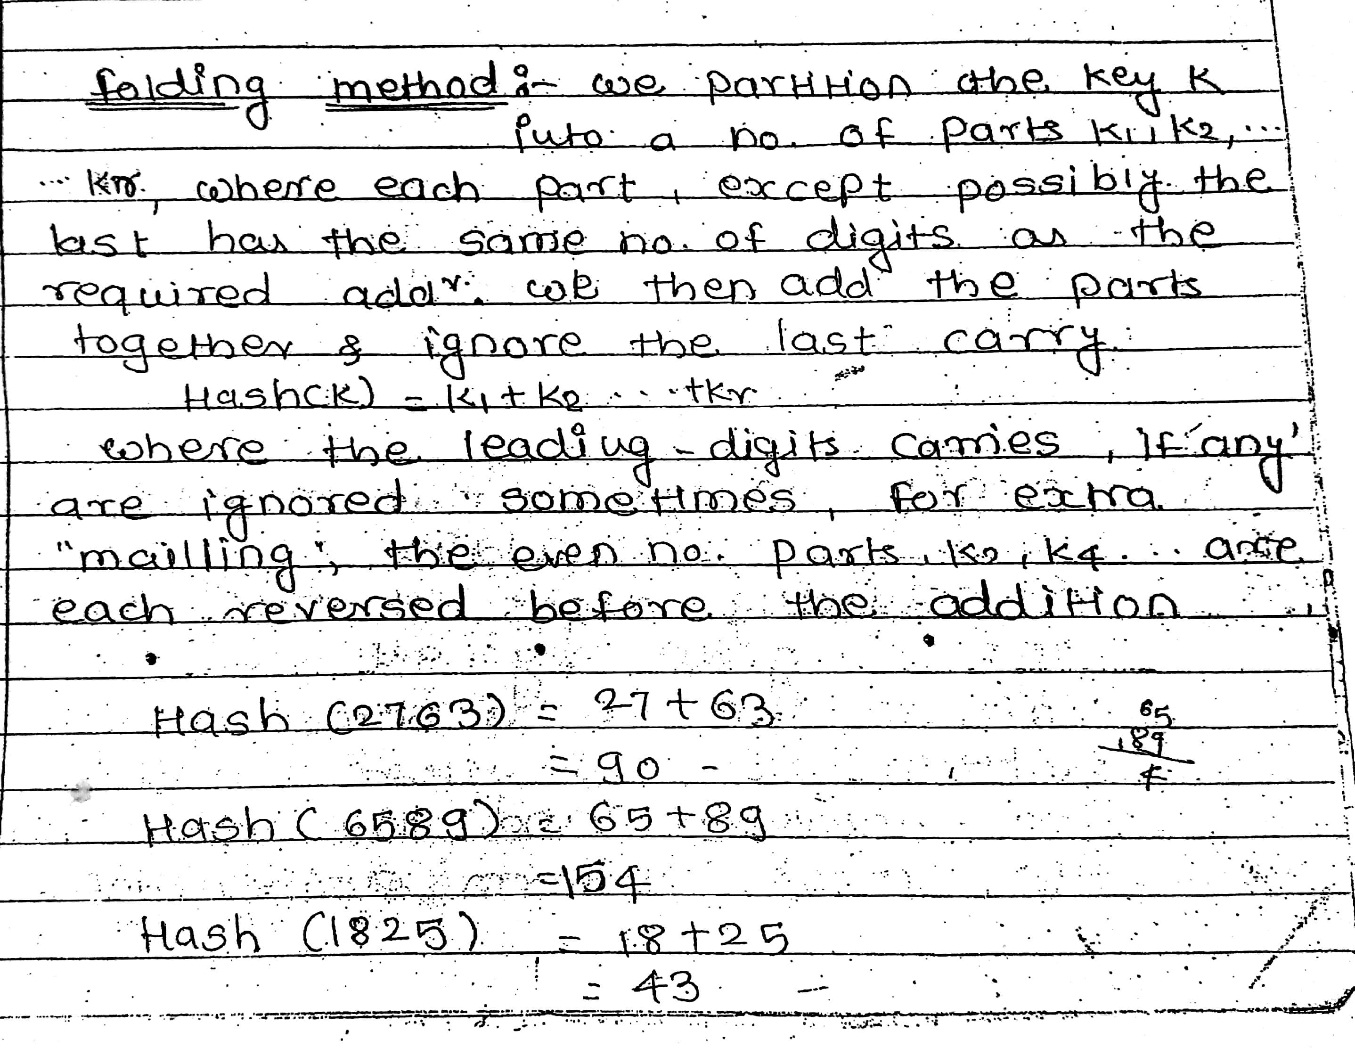 folding method :- we partition the key K
into a no. of parts K1, K2, ...
... Kr, where each part, except possibly the
last has the same no. of digits as the
required addr. we then add the parts
together & ignore the last carry.
Hash(K) = K1 + K2 ... + Kr
where the leading - digits carries, if 'any'
are ignored sometimes, for extra
"mailling", the even no. parts, K2, K4 ... are
each reversed before the addition
Hash (2763) = 27 + 63
= 90 -
65
89
4
Hash (6589) = 65 + 89
= 154
Hash (1825) = 18 + 25
= 43